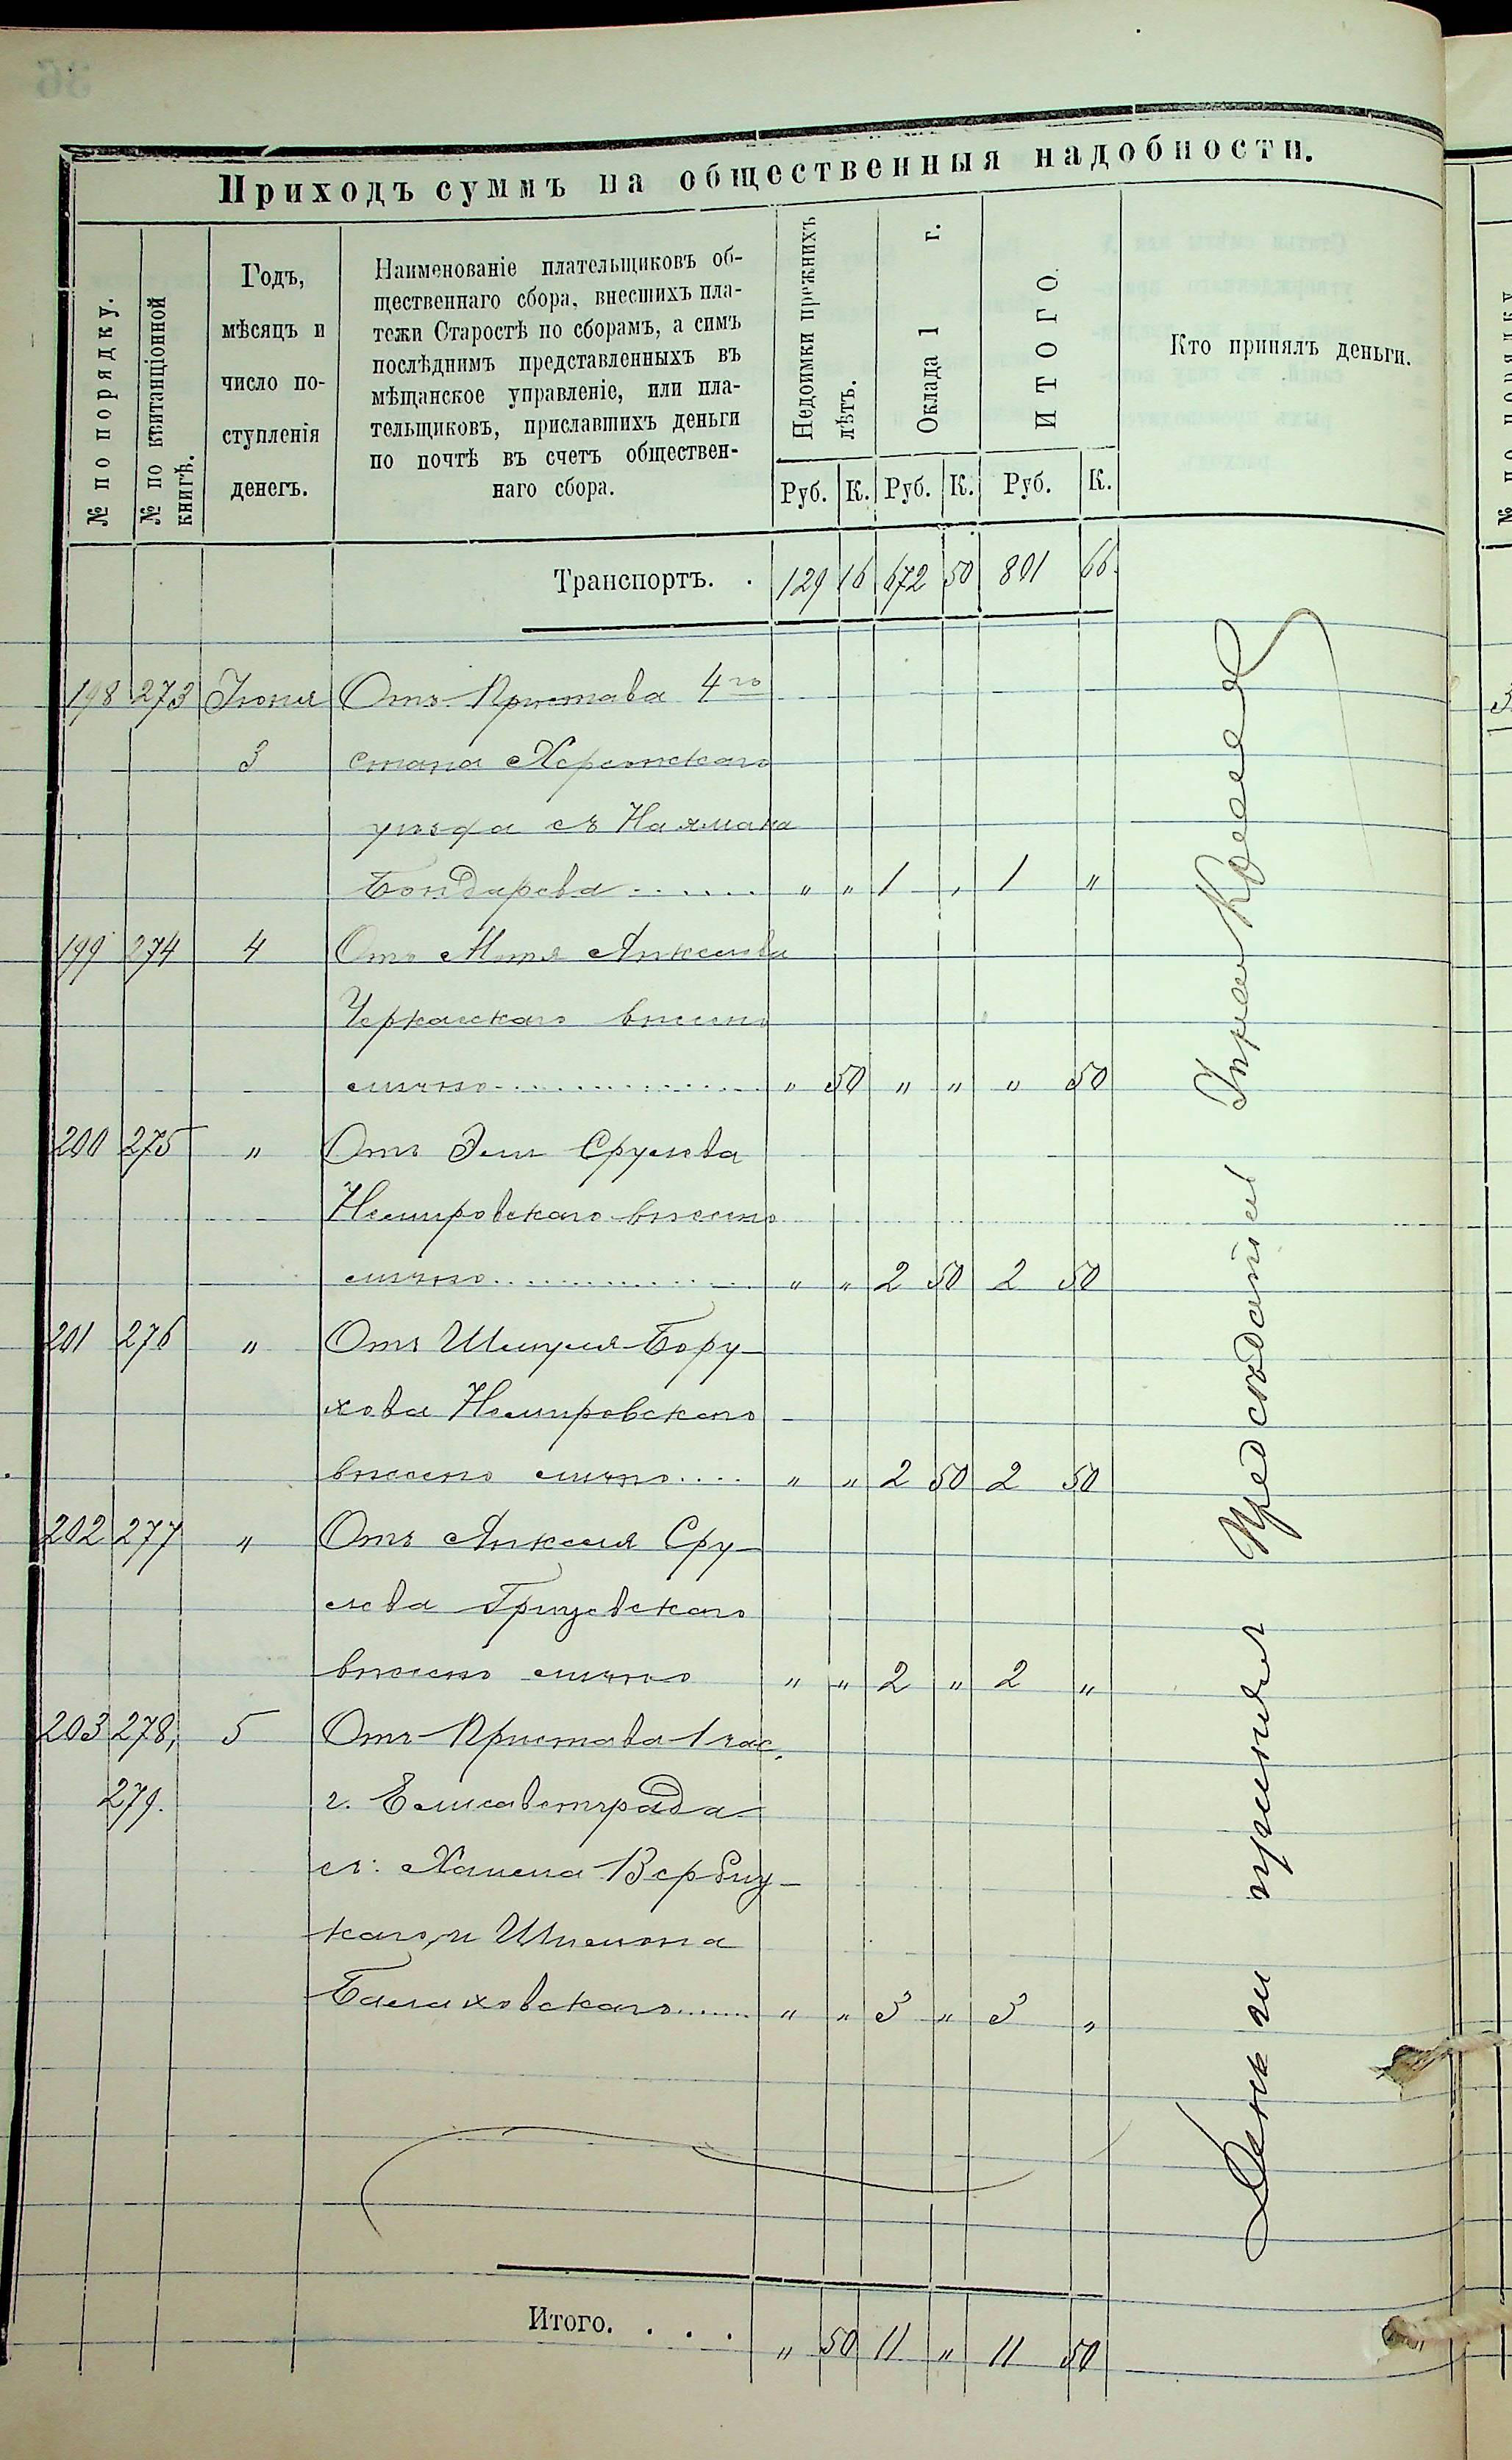 Приходъ суммъ на общественныя надобности.
№ по порядку.
№ по квитанціонной
книгѣ.
Годъ,
мѣсяцъ и
число по-
ступленія
денегъ.
Наименованіе плательщиковъ об-
щественнаго сбора, внесшихъ пла-
тежи Старостѣ по сборамъ, а симъ
послѣднимъ представленныхъ въ
мѣщанское управленіе, или пла-
тельщиковъ, приславшихъ деньги
по почтѣ въ счетъ обществен-
наго сбора.
Недоимки прежнихъ
лѣтъ.
Оклада 1 г.
ИТОГО.
Кто принялъ деньги.
Руб. К. Руб. К. Руб. К.
Транспортъ. . 129 16 672 50 801 66
198 273 Июня Отъ Пристава 4го
3 стана Херсонскаго
уѣзда съ Нахмана
Бондарева ...... " " 1 " 1 "
199 274 4 Отъ
Черкасскаго внесено
лично ............... " 50 " " " 50
200 275 " Отъ Эли Срулева
Немировскаго внесено
лично ............... " " 2 50 2 50
201 276 " Отъ Шмуля Бору-
хова Немировскаго
внесено лично .... " " 2 50 2 50
202 277 " Отъ Анкеля Сру-
лева Грицевскаго
внесено лично " " 2 " 2 "
203 278, 5 Отъ Пристава 1 час.
279. г. Елисаветграда
съ: Хаима Вербиц-
каго, и
Балаховскаго ....... " " 3 " 3 "
Итого. . . . " 50 11 " 11 50
Деньги принялъ Предсѣдатель